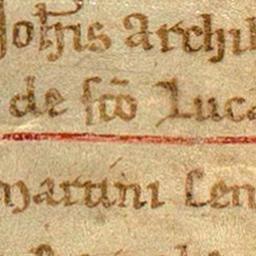 Joħis archi
de sc̄o Luca
martini Len